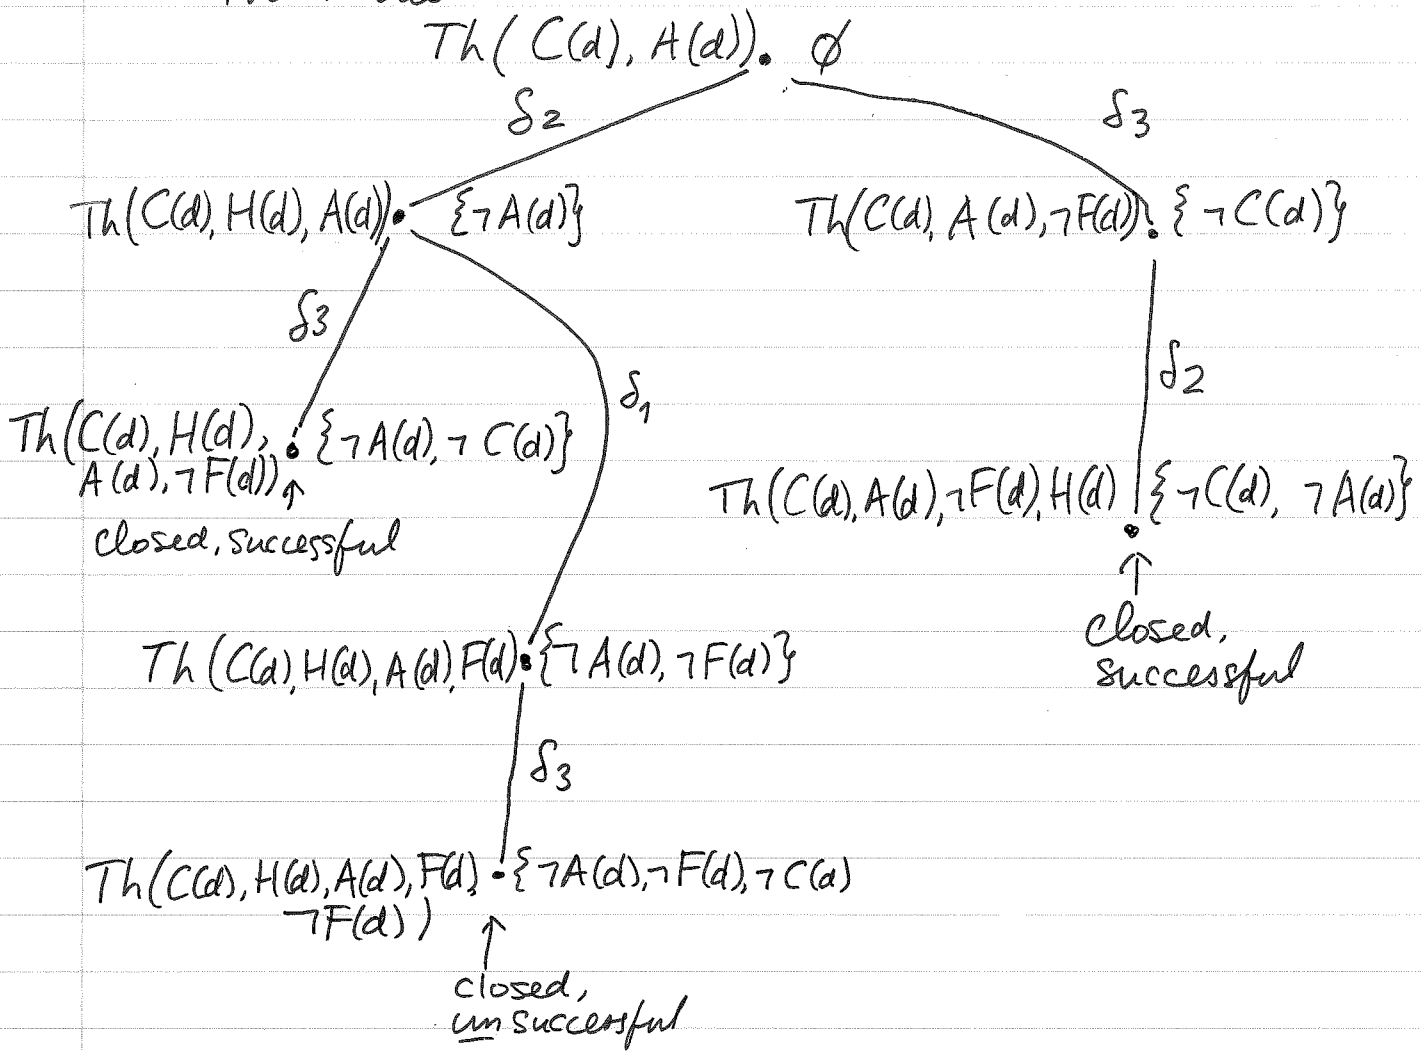 Th( C(d), A(d)). ∅
δ2
δ3
Th(C(d), H(d), A(d)). {¬A(d)}
Th(C(d), A(d), ¬F(d)). {¬C(d)}
δ3
δ1
δ2
Th(C(d), H(d), . {¬A(d), ¬C(d)}
A(d), ¬F(d))
closed, successful
Th(C(d), A(d), ¬F(d), H(d) {¬C(d), ¬A(d)}
closed,
successful
Th(C(d), H(d), A(d) F(d) . {¬A(d), ¬F(d)}
δ3
Th(C(d), H(d), A(d), F(d), . {¬A(d), ¬F(d), ¬C(d)
¬F(d))
closed,
unsuccessful